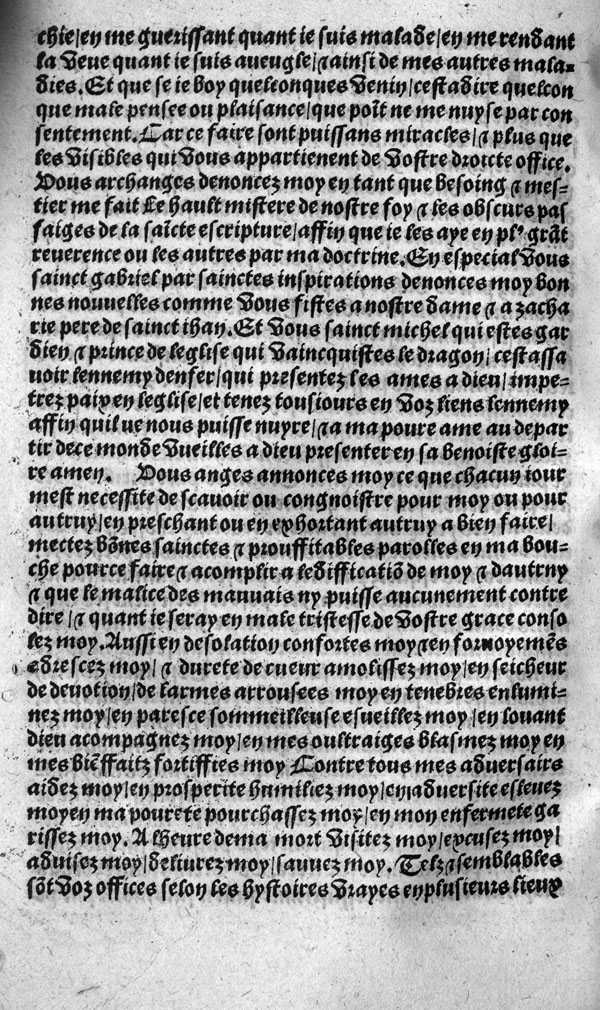 chie/en me guerissant quant ie suis malade/en me rendant
la veue quant ie suis aueugle/⁊ ainsi de mes autres mala-
dies. Et que se ie boy quelconques venin/cest a dire quelcon
que male pensee ou plaisance/que poīt ne me nuyse par con
sentement. Car ce faire sont puissans miracles/⁊ plus que
les visibles qui vous appartienent de vostre droicte office.
Vous archanges denoncez moy en tant que besoing ⁊ mes-
tier me fait Le hault mistere de nostre foy ⁊ les obscurs pas
saiges de la saīcte escripture/affin que ie les aye en plꝰ grāt
reuerence ou les autres par ma doctrine. En especial vous
sainct gabriel par sainctes inspirations denonces moy bon
nes nouuelles comme vous fistes a nostre dame ⁊ a zacha
rie pere de sainct ihan. Et vous sainct michel qui estes gar
dien ⁊ prince de leglise qui vaincquistes le dragon/cest assa
uoir lennemy denfer/qui presentez les ames a dieu/impe-
trez paix en leglise/et tenez tousiours en voz liens lennemy
affin quil ue nous puisse nuyre/⁊ a ma poure ame au depar
tir de ce monde vueilles a dieu presenter en sa benoiste gloi-
re amen. Vous anges annonces moy ce que chacun iour
mest necessite de scauoir ou congnoistre pour moy ou pour
autruy/en preschant ou en exhortant autruy a bien faire/
mectez bōnes sainctes ⁊ prouffitables parolles en ma bou-
che pource faire ⁊ acomplir a ledifficatiō de moy ⁊ dautrny
⁊ que le malice des mauuais ny puisse aucunement contre
dire/⁊ quant ie seray en male tristesse de vostre grace conso
lez moy. Aussi en desolation confortes moy ⁊ en foruoyemēs
adrescez moy/⁊ durete de cueur amolissez moy/en seicheur
de deuotion/de larmes arrousees moy en tenebres enlumi-
nez moy/en paresce sommeilleuse esueillez moy/en louant
dieu acompagnez moy/en mes oultraiges blasmez moy en
mes biēffaitz fortiffies moy Contre tous mes aduersairs
aidez moy/en prosperite humiliez moy/en aduersite esleuez
moy en ma pourete pourchassez moy/en mon enfermete ga
rissez moy. A lheure de ma mort visitez moy/excusez moy/
aduisez moy/deliurez moy/sauuez moy. Telz ⁊ semblables
sōt voz offices selon les hystoires vrayes en plusieurs lieux